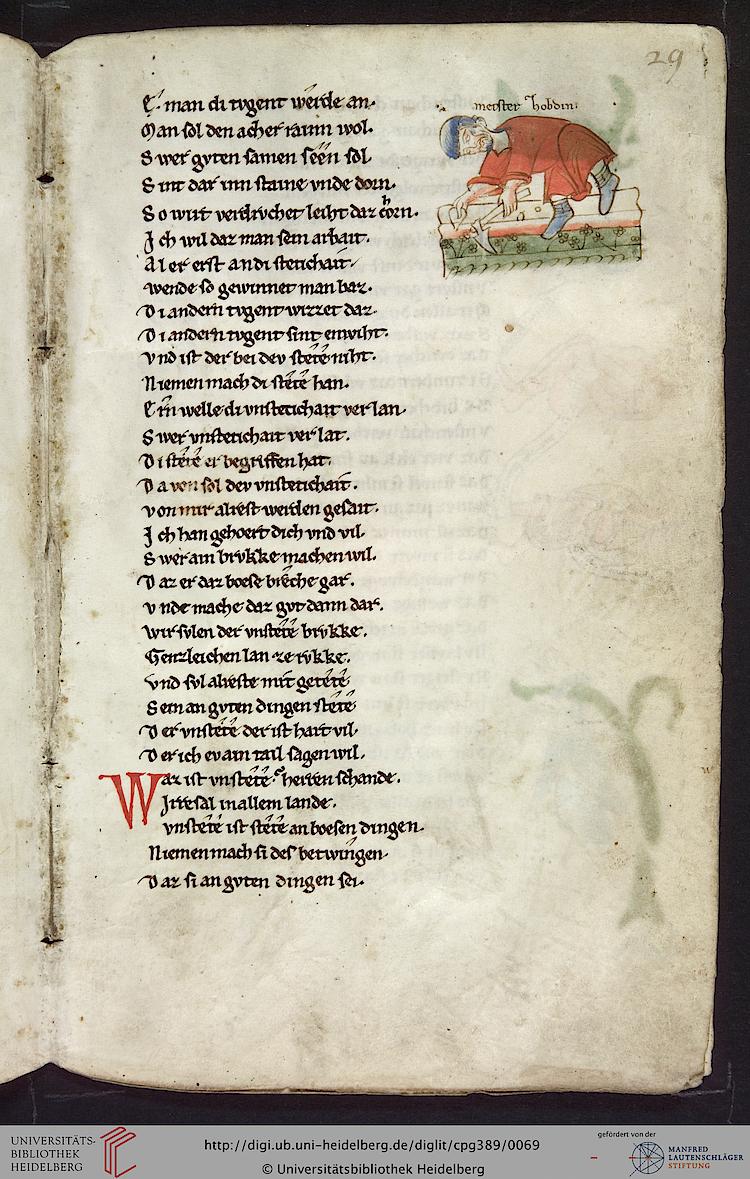 29
meister hobdin
E man di tvgent werde an.
Man sol den acher raum wol.
Swer gvten samen seen sol
Sint dar inn staine vnde dorn.
So wirt verdrvchet leiht daz chorn.
Ich wil daz man sein arbait.
Al er erst an di stetichait.
wende so gewinnet man baz.
Di andern tvgent wizzet daz.
Di andern tvgent sint enwiht.
vnd ist der bei dev stete niht.
Niemen mach di stete han.
Ern welle di vnstetichait verlan.
Swer vnstetichait verlat.
Di stete er begriffen hat.
Da von sol dev vnstetichait.
von mir alrest werden gesait.
Ich han gehoert dich vnd vil.
Swer ain brvkke machen wil.
Daz er daz boese breche gar.
vnde mache daz gvt dann dar.
wir svlen der vnstete brvkke.
Genzleichen lan ze rvkke.
vnd svl alreste mit getete
Sein an gvten dingen stete
Der vnstete der ist hart vil.
Der ich ev ain tail sagen wil.
Waz ist vnstete herren schande.
Irresal in allem lande.
vnstete ist stete an boesen dingen.
Niemen mach si des betwingen.
Daz si an gvten dingen sei.
UNIVERSITÄTS-
BIBLIOTHEK
HEIDELBERG
http://digi.ub.uni-heidelberg.de/diglit/cpg389/0069
© Universitätsbibliothek Heidelberg
gefördert von der
MANFRED
LAUTENSCHLÄGER
STIFTUNG